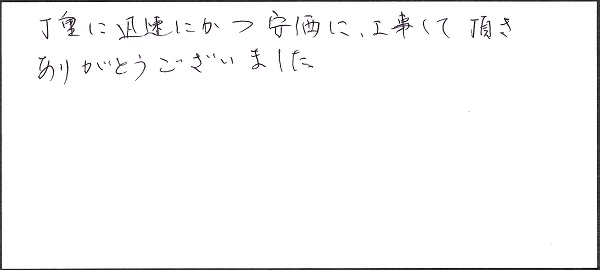 丁重に迅速にかつ安価に、工事して頂き
ありがとうございました